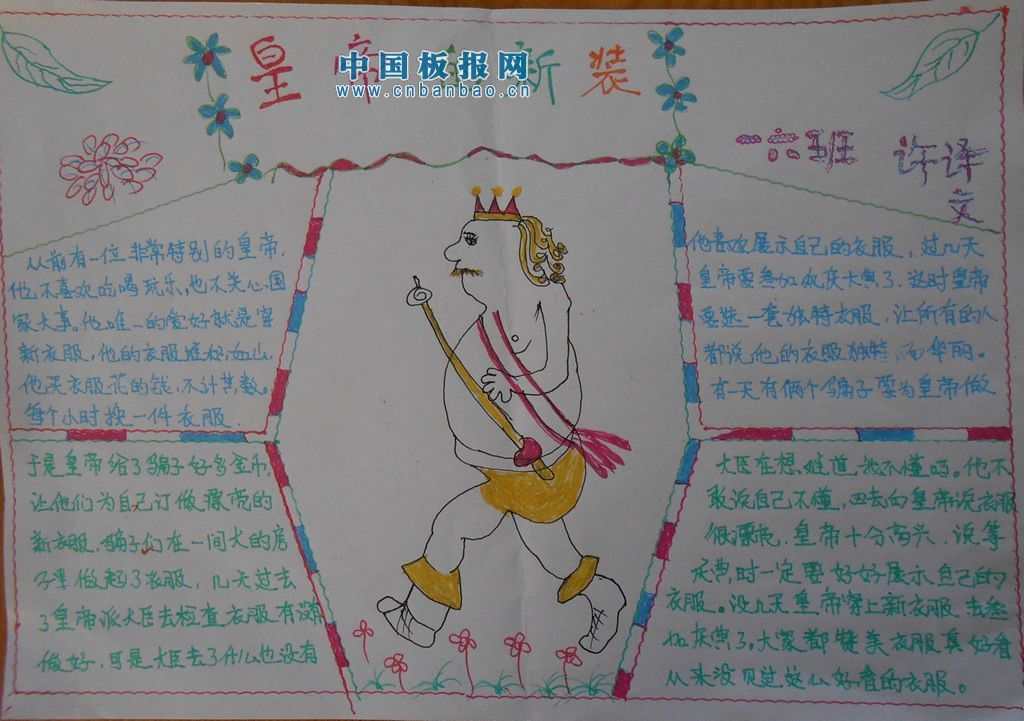 皇帝的新装
中国板报网
www.cnbanbao.cn
一六班 许译文
从前有一位非常特别的皇帝,
他不喜欢吃喝玩乐,也不关心国
家大事。他唯一的爱好就是穿
新衣服,他的衣服堆积如山,
他买衣服花的钱,不计其数。
每个小时换一件衣服.
他喜欢展示自己的衣服,过几天
皇帝要参加欢庆大典了,这时皇帝
要选一套独特衣服,让所有的人
都说他的衣服独特,而华丽。
有一天有俩个骗子要为皇帝做
于是皇帝给了骗子好多金币,
让他们为自己订做漂亮的
新衣服,骗子们在一间大的房
子里做起了衣服,几天过去
了皇帝派大臣去检查衣服有没有
做好,可是大臣去了什么也没有
大臣在想难道我不懂吗。他不
敢说自己不懂,回去向皇帝说衣服
很漂亮,皇帝十分高兴,说等
庆典时一定要好好展示自己的
衣服。没几天皇帝穿上新衣服去参
加庆典了。大家都赞美衣服真好看
从来没见过这么好看的衣服。